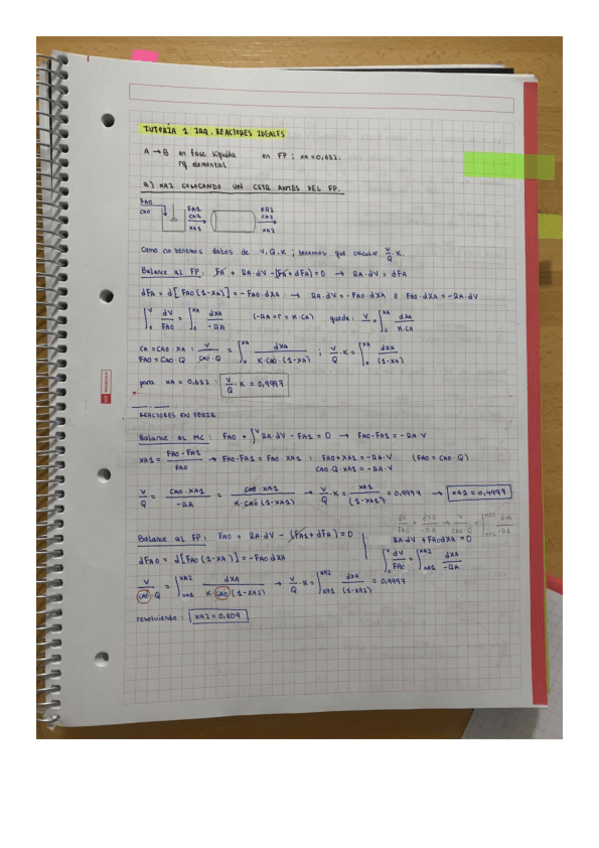 TUTORÍA 1 IRQ. REACTORES IDEALES
A → B en fase líquida en FP ; XA = 0,632.
rq elemental
a) XA2 COLOCANDO UN CSTR ANTES DEL FP.
FA0 FA1 FA2
CA0 CA1 CA2
XA1 XA2
Como no tenemos datos de V, Q, K ; tenemos que calcular V/Q · K.
Balance al FP: FA + RA·dV - (FA + dFA) = 0 → RA·dV = dFA
dFA = d[FA0 (1-XA)] = -FA0·dXA → RA·dV = -FA0·dXA FA0·dXA = -RA·dV
∫₀^V dV/FA0 = ∫₀^XA dXA/-RA (-RA = r = K·CA) queda: V = ∫₀^XA dXA/K·CA
CA = CA0·XA : V/CA0·Q = ∫₀^XA dXA/K·CA0·(1-XA) ; V/Q · K = ∫₀^XA dXA/(1-XA)
FA0 = CA0·Q
para XA = 0,632 : V/Q · K = 0,9997
REACTORES EN SERIE
Balance al MC: FA0 + ∫₀^V RA·dV - FA1 = 0 → FA0-FA1 = -RA·V
XA1 = FA0-FA1/FA0 → FA0-FA1 = FA0·XA1 : FA0·XA1 = -RA·V (FA0 = CA0·Q)
CA0·Q·XA1 = -RA·V
V/Q = CA0·XA1/-RA = CA0·XA1/K·CA0(1-XA1) → V/Q · K = XA1/(1-XA1) = 0,9997 → XA1 = 0,4999
Balance al FP: FA0 + RA·dV - (FA1 + dFA) = 0 RA·dV + FA0dXA = 0
dFA0 = d[FA0(1-XA)] = -FA0dXA ∫₀^V dV/FA0 = ∫XA1^XA2 dXA/-RA
V/CA0·Q = ∫XA1^XA2 dXA/K·CA0(1-XA2) → V/Q · K = ∫XA1^XA2 dXA/(1-XA2) = 0,9997
resolviendo: XA2 = 0,809